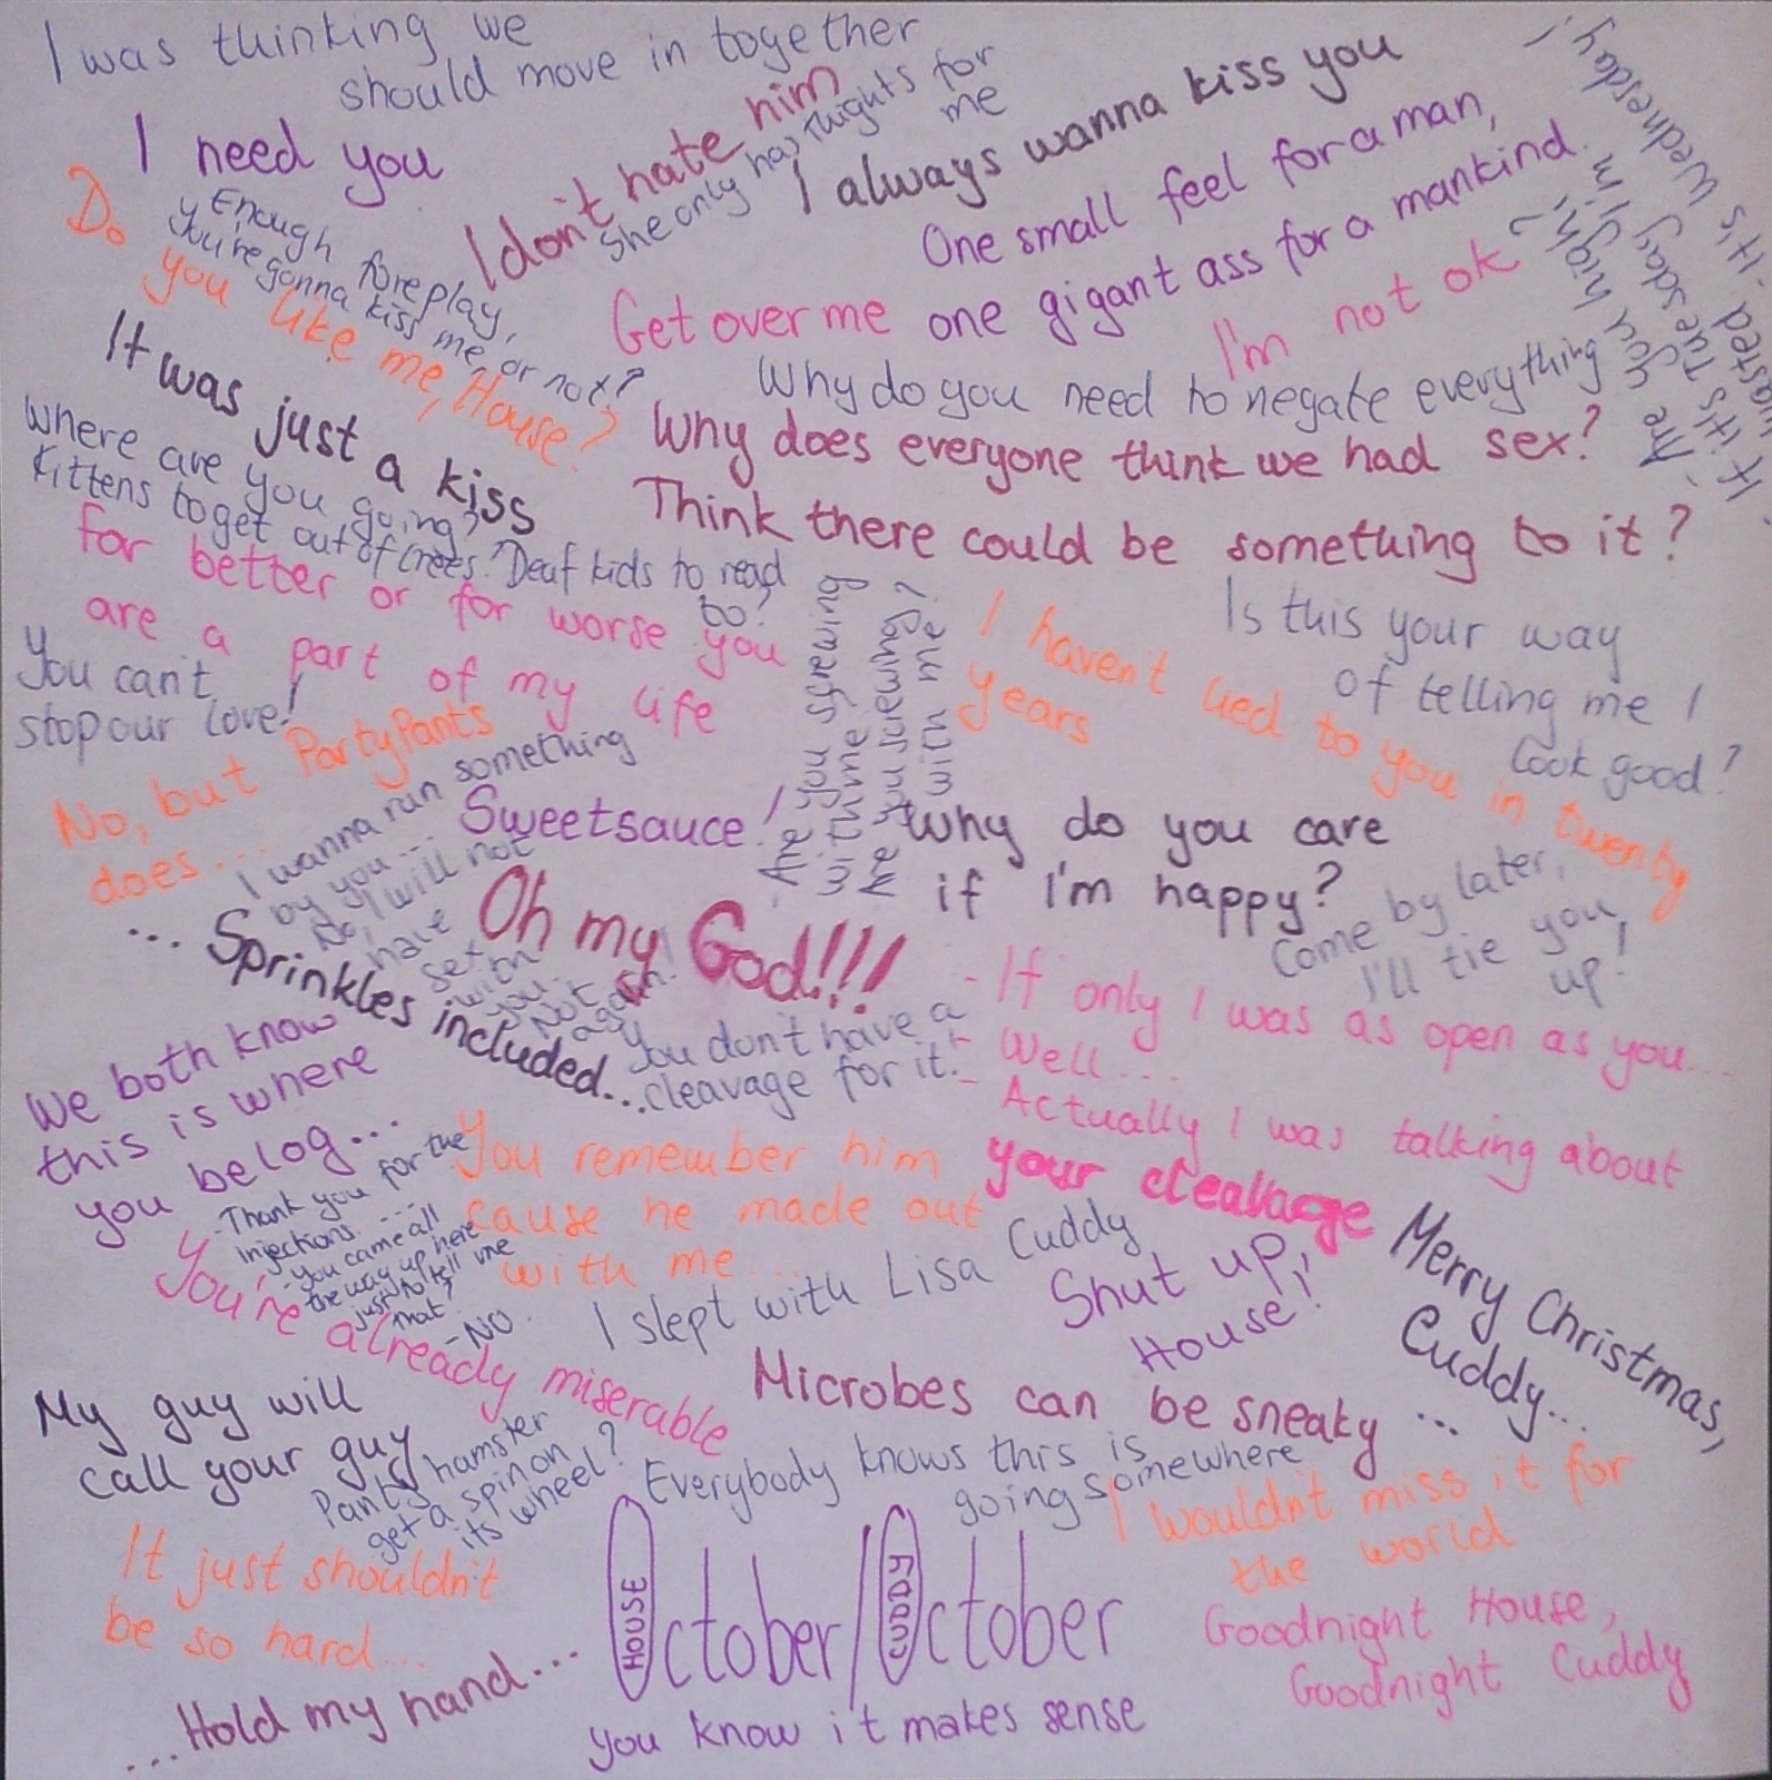 I was thinking we
should move in together
I need you
I don't hate him
She only has thights for
me
I always wanna kiss you
One small feel for a man,
one gigant ass for a mankind.
Do you like me, House?
Enough foreplay,
you're gonna kiss me, or not?
Get over me
I'm not ok
- Are you high?
- It's Tuesday, I'm
wasted. It's Wednesday!
It was just a kiss
Why do you need to negate everything
Why does everyone think we had sex?
Think there could be something to it?
Where are you going?
Kittens to get out of trees? Deaf kids to read
to?
for better or for worse you
are a part of my life
You can't
stop our love!
Are you screwing
with me
Are you screwing?
with me?
I haven't lied to you in twenty
years
Is this your way
of telling me I
look good?
No, but PartyPants
does...
I wanna run something
by you...
No, I will not
have
sex
with
you.
Not
again!
Sweetsauce!
Why do you care
if I'm happy?
... Sprinkles included...
Oh my God!!!
Come by later,
I'll tie you
up!
- If only I was as open as you...
- Well...
- Actually I was talking about
your clealvage
You don't have a
cleavage for it!
We both know
this is where
you belog...
- Thank you for the
injections....
- You came all
the way up here
just to tell me
that?
- No.
You remember him
cause he made out
with me...
You're already miserable
I slept with Lisa Cuddy
Shut up,
House!
Merry Christmas,
Cuddy...
Microbes can be sneaky...
My guy will
call your guy
Panty hamster
get a spin on
its wheel?
Everybody knows this is
going somewhere
I wouldn't miss it for
the world
It just shouldn't
be so hard...
HOUSE
October/October
CUDDY
Goodnight House,
Goodnight Cuddy
...Hold my hand...
you know it makes sense